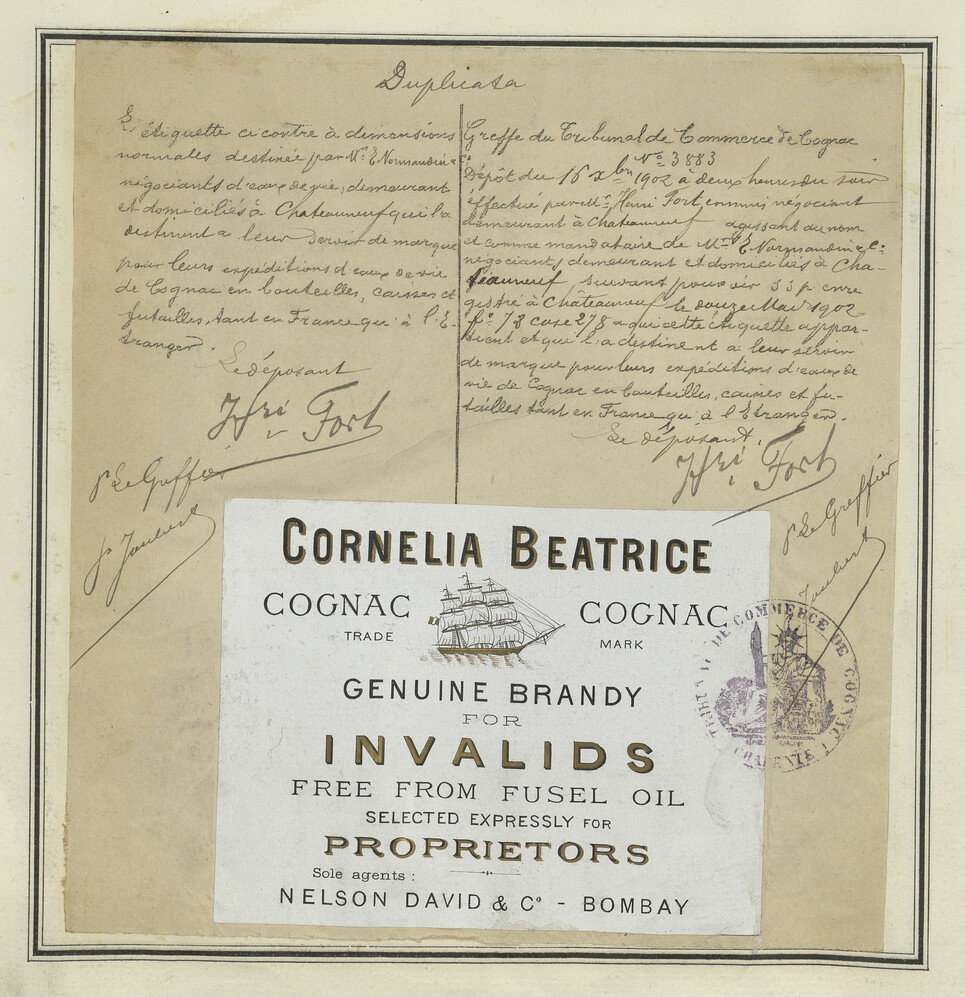 Duplicata
L'étiquette ci contre à dimensions
normales destinée par Mrs E Normandin & Co
négociants d'eaux de vie, demeurant
et domiciliés à Chateauneuf qui la
destinent a leur servir de marque
pour leurs expéditions d'eaux de vie
de Cognac en bouteilles, caisses et
futailles, tant en France qu'à l'E-
tranger.
Le déposant
Hri Fort
Pr Le Greffier
Joubert
Greffe du Tribunal de Commerce de Cognac
No 3883
Dépôt du 16 Xbre 1902 à deux heures du soir
effectué par Mr Henri Fort commis négociant
demeurant à Chateauneuf agissant au nom
et comme mandataire de Mrs E Normandin & Co
négociants, demeurant et domiciliés à Cha-
teauneuf, suivant pouvoir s s p enre
gistré à Châteauneuf le douze Mai 1902
fo 73 case 278 a qui cette étiquette appar-
tient et qui l'a destinent a leur servir
de marque pour leurs expéditions d'eaux de
vie de Cognac en bouteilles, caisses et fu-
tailles tant en France qu'à l'Etranger.
Le déposant,
Hri Fort
Pr Le Greffier
Joubert
CORNELIA BEATRICE
COGNAC COGNAC
TRADE MARK
GENUINE BRANDY
FOR
INVALIDS
FREE FROM FUSEL OIL
SELECTED EXPRESSLY FOR
PROPRIETORS
Sole agents :
NELSON DAVID & Co - BOMBAY
TRIBUNAL DE COMMERCE DE COGNAC
CHARENTE